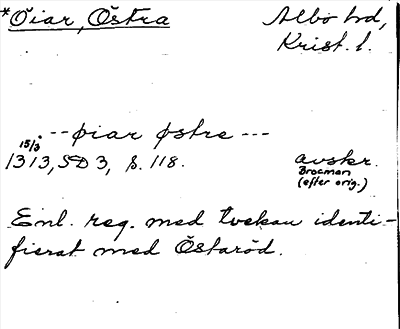 *Öiar, Östra
Albo hd,
Krist. l.
-- øiar østre ---
15/3
1313, SD 3, s. 118.
avskr.
Brocman
(efter orig.)
Enl. reg. med tvekan identi-
fierat med Östaröd.